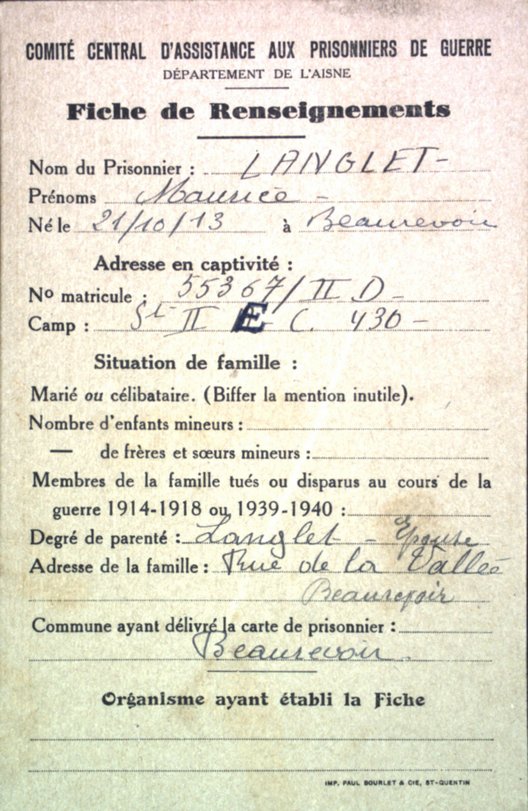 COMITÉ CENTRAL D'ASSISTANCE AUX PRISONNIERS DE GUERRE
DÉPARTEMENT DE L'AISNE
Fiche de Renseignements
Nom du Prisonnier : LANGLET -
Prénoms Maurice -
Né le 21/10/13 à Beaurevoir
Adresse en captivité :
No matricule : 55367/II D -
Camp : II E C. 430 -
Situation de famille :
Marié ou célibataire. (Biffer la mention inutile).
Nombre d'enfants mineurs :
— de frères et sœurs mineurs :
Membres de la famille tués ou disparus au cours de la
guerre 1914-1918 ou 1939-1940 :
Degré de parenté : Langlet - Epouse
Adresse de la famille : Rue de la Vallée
Beaurevoir
Commune ayant délivré la carte de prisonnier :
Beaurevoir.
Organisme ayant établi la Fiche
IMP. PAUL BOURLET & CIE, ST-QUENTIN